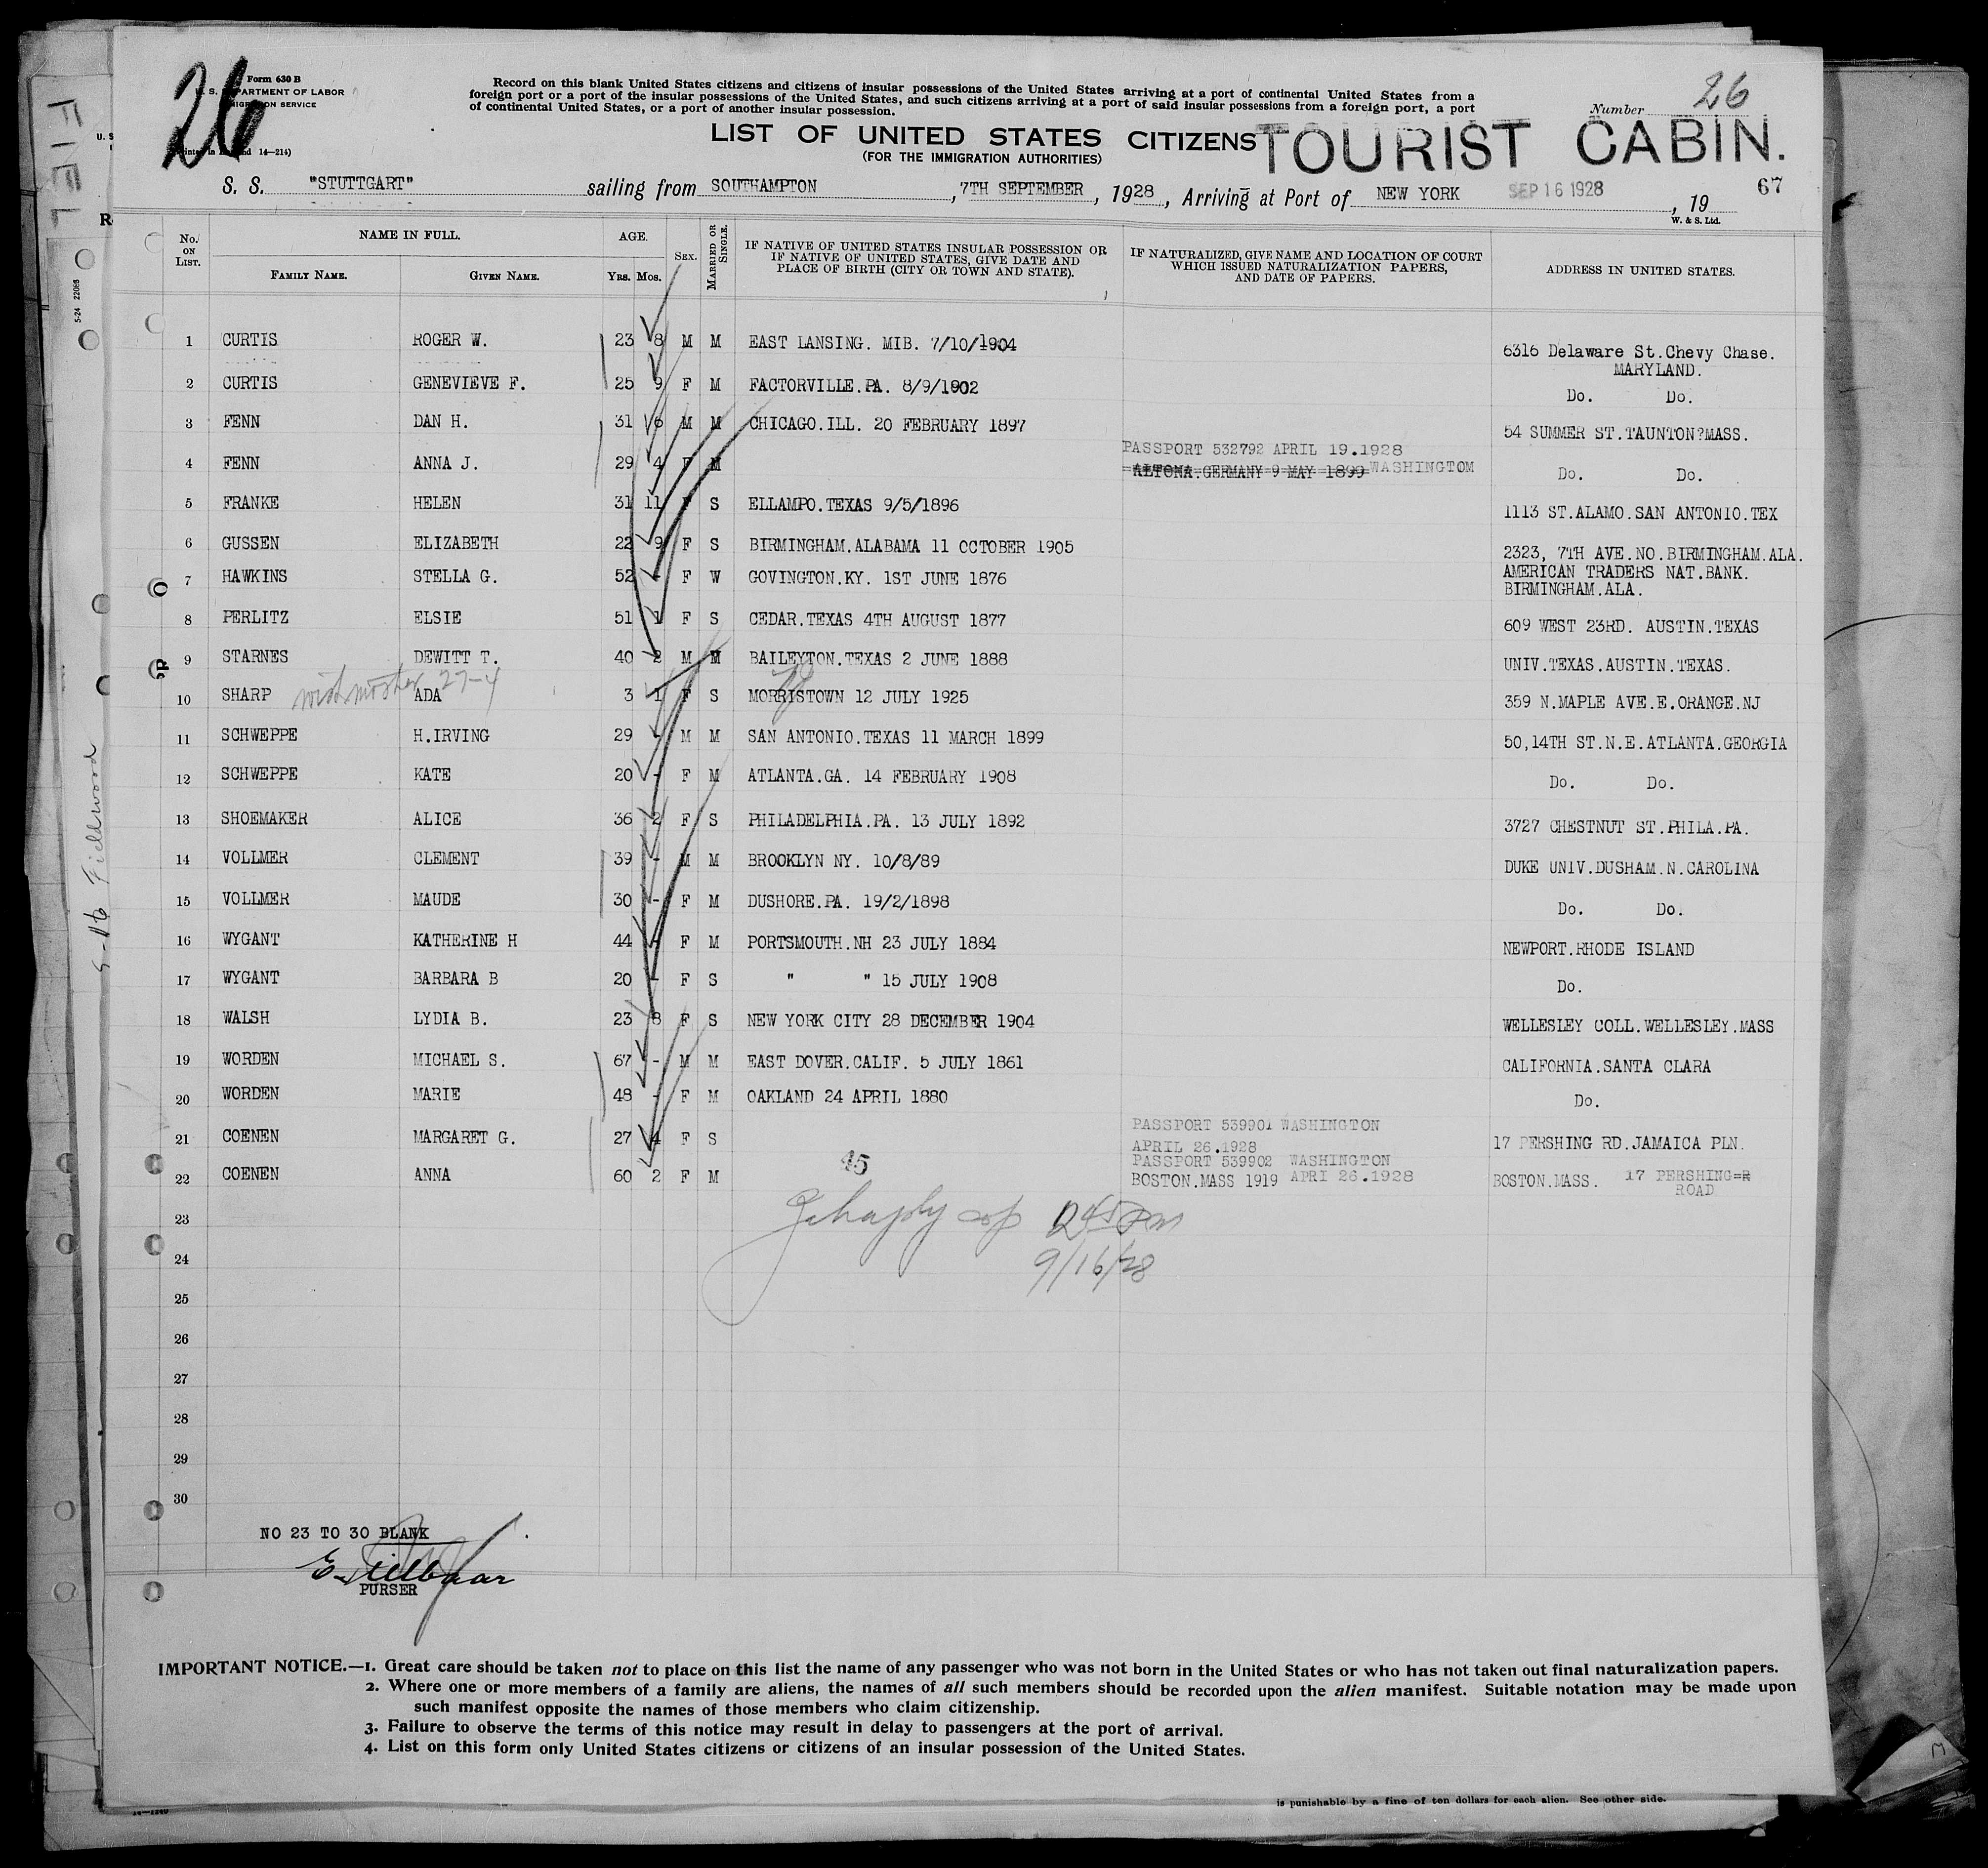 26
Form 630 B
U. S. DEPARTMENT OF LABOR
IMMIGRATION SERVICE
14—214)
Record on this blank United States citizens and citizens of insular possessions of the United States arriving at a port of continental United States from a
foreign port or a port of the insular possessions of the United States, and such citizens arriving at a port of said insular possessions from a foreign port, a port
of continental United States, or a port of another insular possession.
Number 26
LIST OF UNITED STATES CITIZENS TOURIST CABIN.
(FOR THE IMMIGRATION AUTHORITIES)
67
S. S. "STUTTGART" sailing from SOUTHAMPTON, 7TH SEPTEMBER, 1928, Arriving at Port of NEW YORK SEP 16 1928, 19
W. & S. Ltd.
No. ON LIST. NAME IN FULL. FAMILY NAME. GIVEN NAME. AGE. YRS. MOS. SEX. MARRIED OR SINGLE.
IF NATIVE OF UNITED STATES INSULAR POSSESSION OR
IF NATIVE OF UNITED STATES, GIVE DATE AND
PLACE OF BIRTH (CITY OR TOWN AND STATE).
IF NATURALIZED, GIVE NAME AND LOCATION OF COURT
WHICH ISSUED NATURALIZATION PAPERS,
AND DATE OF PAPERS.
ADDRESS IN UNITED STATES.
1 CURTIS ROGER W. 23 8 M M EAST LANSING. MIB. 7/10/1904 6316 Delaware St.Chevy Chase.
MARYLAND.
2 CURTIS GENEVIEVE F. 25 9 F M FACTORVILLE.PA. 8/9/1902 Do. Do.
3 FENN DAN H. 31 6 M M CHICAGO.ILL. 20 FEBRUARY 1897 54 SUMMER ST.TAUNTON?MASS.
PASSPORT 532792 APRIL 19.1928
4 FENN ANNA J. 29 4 F M ALTONA.GERMANY 9 MAY 1899 WASHINGTOM Do. Do.
5 FRANKE HELEN 31 11 F S ELLAMPO.TEXAS 9/5/1896 1113 ST.ALAMO.SAN ANTONIO.TEX
6 GUSSEN ELIZABETH 22 9 F S BIRMINGHAM.ALABAMA 11 OCTOBER 1905 2323, 7TH AVE.NO.BIRMINGHAM.ALA.
7 HAWKINS STELLA G. 52 - F W GOVINGTON.KY. 1ST JUNE 1876 AMERICAN TRADERS NAT.BANK.
BIRMINGHAM.ALA.
8 PERLITZ ELSIE 51 1 F S CEDAR.TEXAS 4TH AUGUST 1877 609 WEST 23RD. AUSTIN.TEXAS
9 STARNES DEWITT T. 40 2 M M BAILEYTON.TEXAS 2 JUNE 1888 UNIV.TEXAS.AUSTIN.TEXAS.
10 SHARP with mother 27-4 ADA 3 1 F S MORRISTOWN 12 JULY 1925 359 N.MAPLE AVE.E.ORANGE.NJ
11 SCHWEPPE H.IRVING 29 - M M SAN ANTONIO.TEXAS 11 MARCH 1899 50,14TH ST.N.E.ATLANTA.GEORGIA
12 SCHWEPPE KATE 20 - F M ATLANTA.GA. 14 FEBRUARY 1908 Do. Do.
13 SHOEMAKER ALICE 36 2 F S PHILADELPHIA.PA. 13 JULY 1892 3727 CHESTNUT ST.PHILA.PA.
14 VOLLMER CLEMENT 39 - M M BROOKLYN NY. 10/8/89 DUKE UNIV.DUSHAM.N.CAROLINA
15 VOLLMER MAUDE 30 - F M DUSHORE.PA. 19/2/1898 Do. Do.
16 WYGANT KATHERINE H 44 - F M PORTSMOUTH.NH 23 JULY 1884 NEWPORT.RHODE ISLAND
17 WYGANT BARBARA B 20 - F S " " 15 JULY 1908 Do.
18 WALSH LYDIA B. 23 8 F S NEW YORK CITY 28 DECEMBER 1904 WELLESLEY COLL.WELLESLEY.MASS
19 WORDEN MICHAEL S. 67 - M M EAST DOVER.CALIF. 5 JULY 1861 CALIFORNIA.SANTA CLARA
20 WORDEN MARIE 48 - F M OAKLAND 24 APRIL 1880 Do.
PASSPORT 539901 WASHINGTON
21 COENEN MARGARET G. 27 4 F S APRIL 26.1928 17 PERSHING RD.JAMAICA PLN.
45 PASSPORT 539902 WASHINGTON
22 COENEN ANNA 60 2 F M BOSTON.MASS 1919 APRI 26.1928 BOSTON.MASS. 17 PERSHING=R
ROAD
23
24
9/16/28
25
26
27
28
29
30
NO 23 TO 30 BLANK
PURSER
IMPORTANT NOTICE.—1. Great care should be taken not to place on this list the name of any passenger who was not born in the United States or who has not taken out final naturalization papers.
2. Where one or more members of a family are aliens, the names of all such members should be recorded upon the alien manifest. Suitable notation may be made upon
such manifest opposite the names of those members who claim citizenship.
3. Failure to observe the terms of this notice may result in delay to passengers at the port of arrival.
4. List on this form only United States citizens or citizens of an insular possession of the United States.
is punishable by a fine of ten dollars for each alien. See other side.